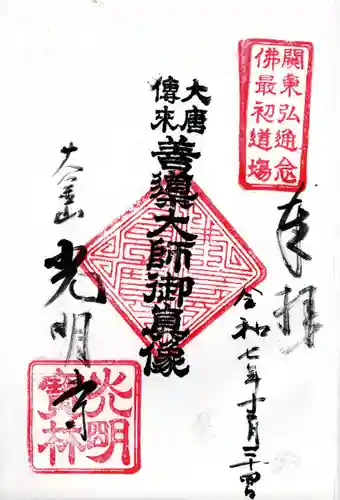 關東弘通念
佛最初道場
奉拝
令和七年十二月二十四日
大唐
傳來
善導大師御真像
天照山
光明寺
光明
寶林